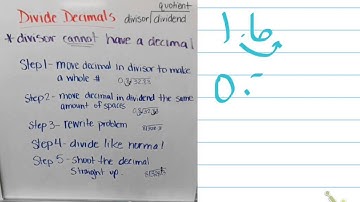 quotient
Divide Decimals divisor dividend
* divisor cannot have a decimal
Step 1 - move decimal in divisor to make
a whole #
Step 2 - move decimal in dividend the same
amount of spaces
Step 3 - rewrite problem
Step 4 - divide like normal
Step 5 - shoot the decimal
straight up.
1.6
0.